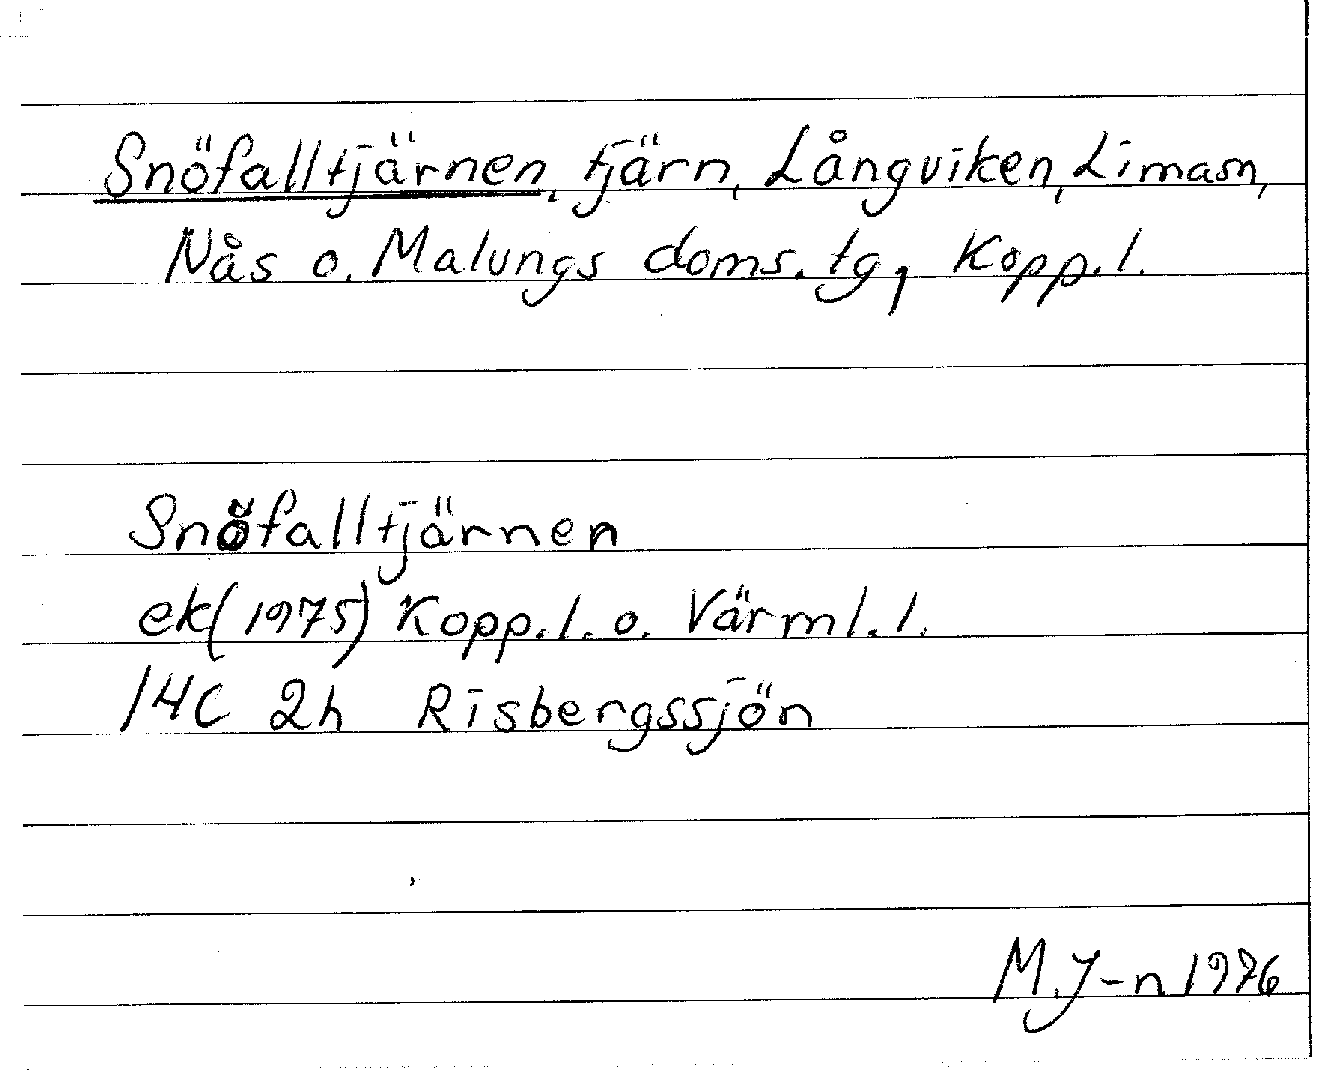 Snöfalltjärnen, tjärn, Långviken, Lima sn,
Nås o. Malungs doms. tg, Kopp. l.
Snöfalltjärnen
ek (1975) Kopp. l. o. Värml. l.
14C 2h Risbergssjön
M.J-n 1976